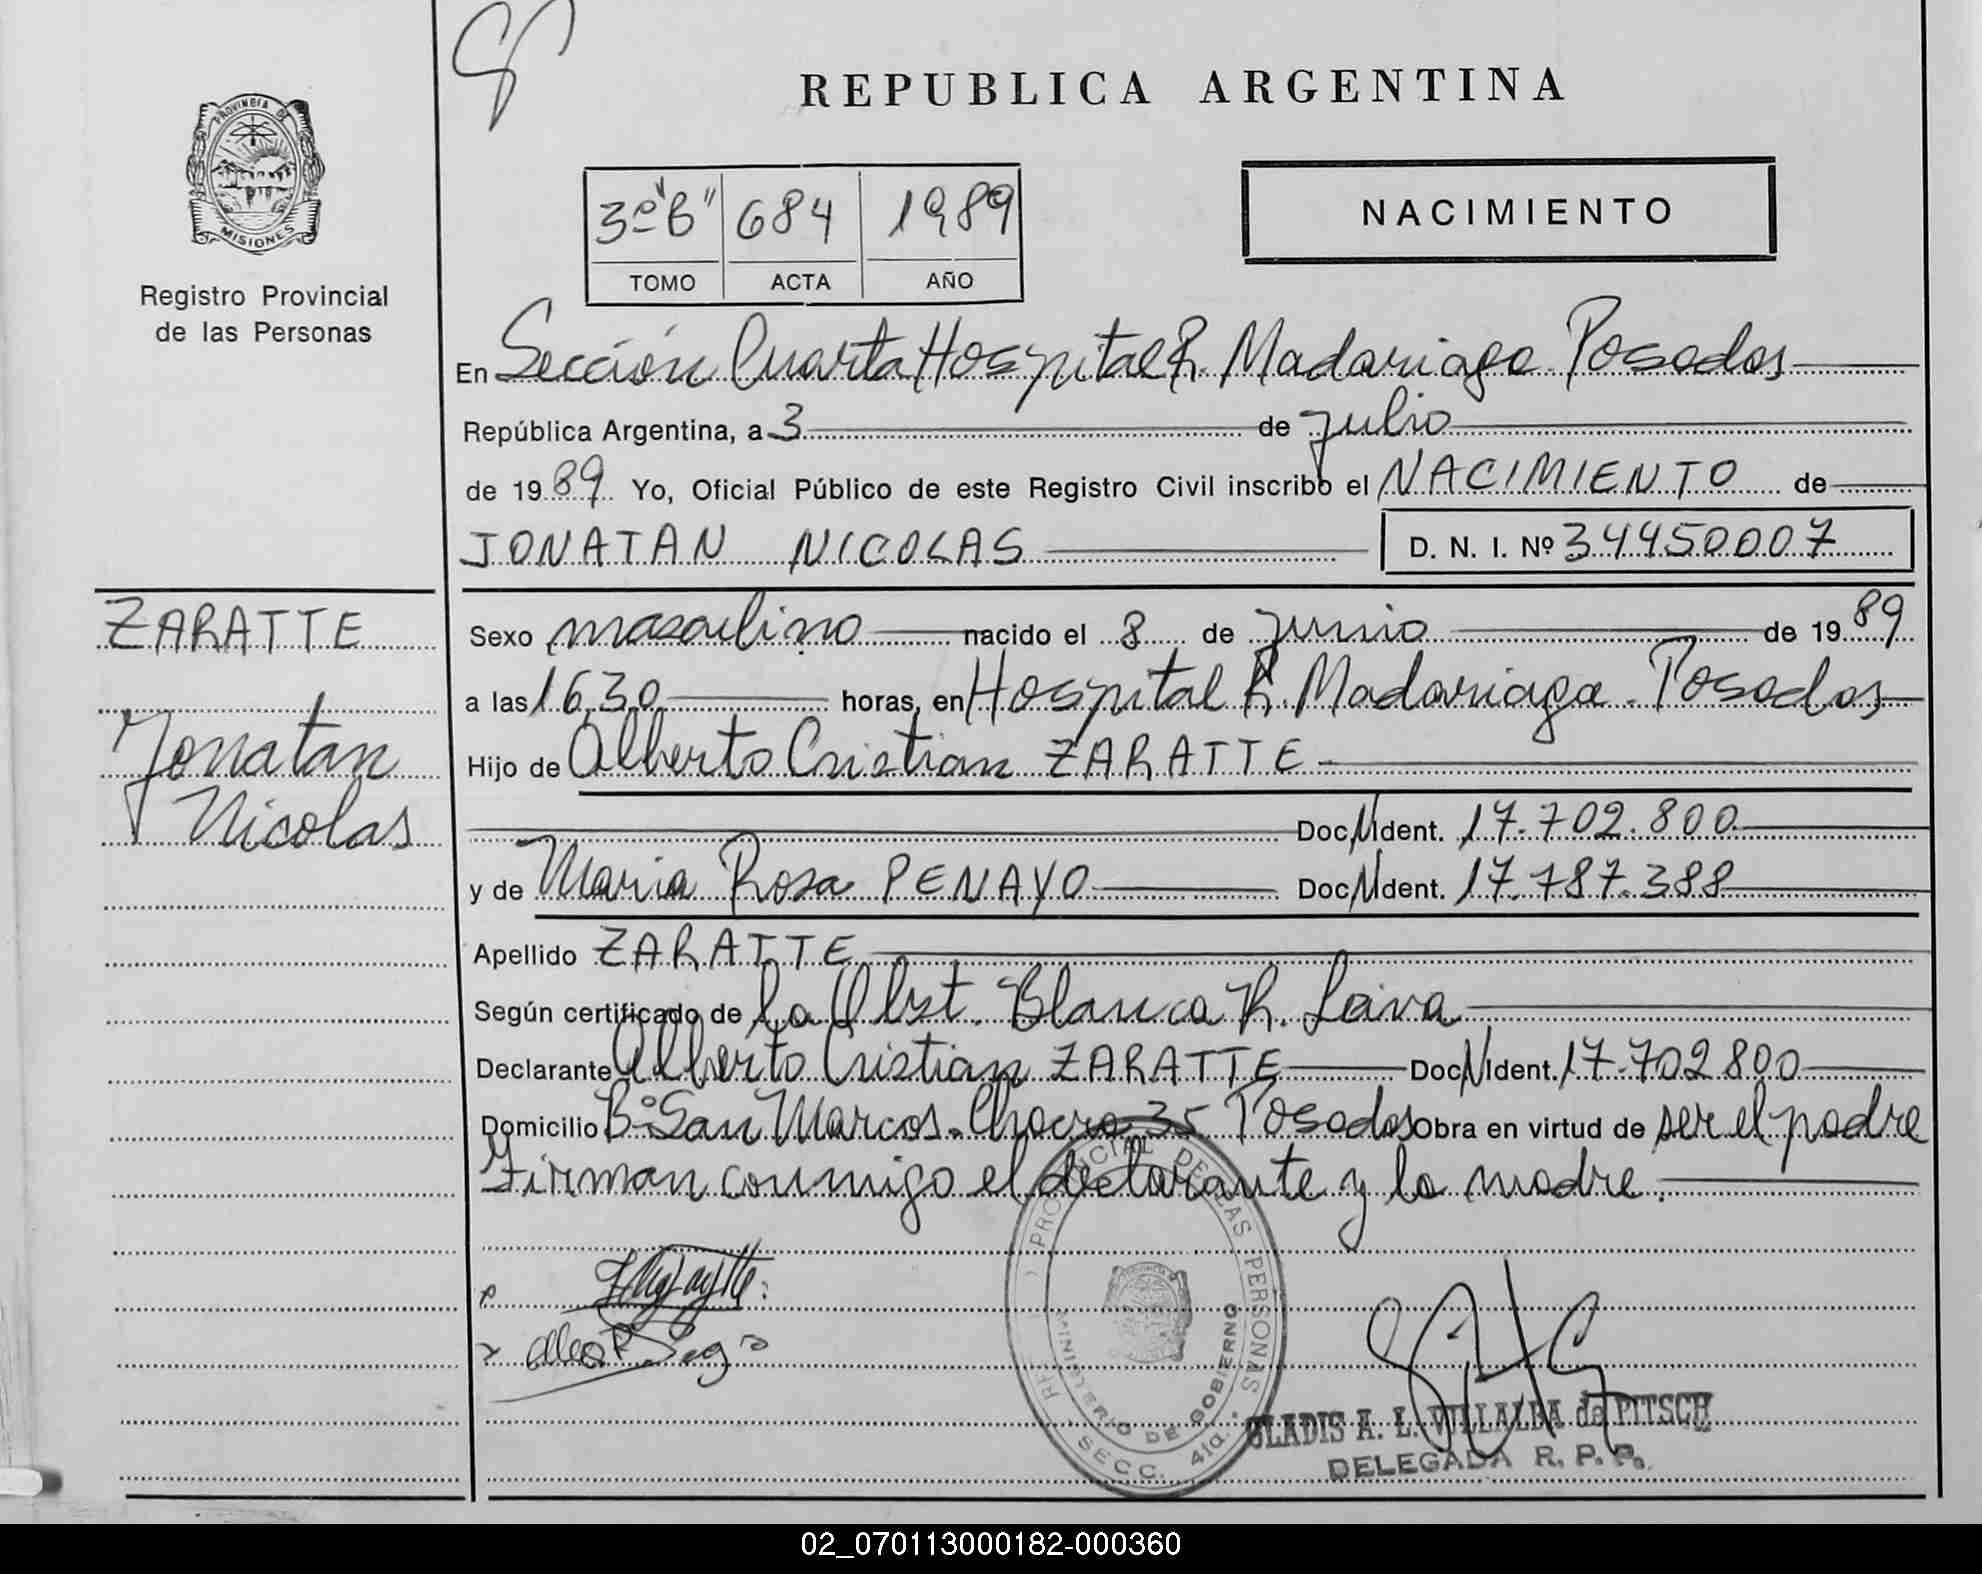 REPUBLICA ARGENTINA
PROVINCIA DE
MISIONES
Registro Provincial
de las Personas
3º "B" 684 1989
TOMO ACTA AÑO
NACIMIENTO
En Sección Cuarta Hospital R. Madariaga Posadas
República Argentina, a 3 de julio
de 1989 Yo, Oficial Público de este Registro Civil inscribo el NACIMIENTO de
JONATAN NICOLAS D. N. I. Nº 34450007
ZARATTE
Jonatan
Nicolas
Sexo masculino nacido el 8 de junio de 1989
a las 16,30 horas, en Hospital R. Madariaga. Posadas
Hijo de Alberto Cristian ZARATTE
Doc. N. Ident. 17.702.800
y de Maria Rosa PENAYO Doc. N. Ident. 17.787.388
Apellido ZARATTE
Según certificado de la Obst. Blanca R. Leiva
Declarante Alberto Cristian ZARATTE Doc. N. Ident. 17.702.800
Domicilio Bº San Marcos. Chacra 35 Posadas obra en virtud de ser el padre
Firman conmigo el declarante y la madre.
PROVINCIAL DE LAS PERSONAS
MINISTERIO DE GOBIERNO
SECC. 4ta.
GLADIS A. L. VILLALBA de PITSCH
DELEGADA R. P. P.
02_070113000182-000360